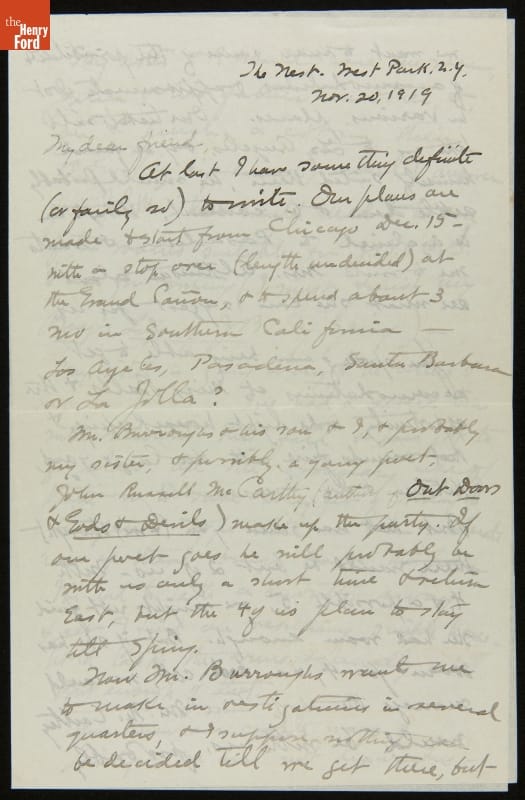 the
Henry
Ford
The Nest. West Park, N.Y.
Nov. 20, 1919
My dear friend,
At last I have something definite
(or fairly so) to write. Our plans are
made to start from Chicago Dec. 15-
with a stop over (length undecided) at
the Grand Cañon, & to spend about 3
mo in Southern California —
Los Ageles, Pasadena, Santa Barbara
or La Jolla?
Mr. Burroughs & his son & I, & probably
my sister, & possibly a young poet,
John Russell McCarthy (author of Out Doors
& Gods & Devils) make up the party. If
our poet goes he will probably be
with us only a short time & return
East, but the 4 of us plan to stay
till Spring.
Now Mr. Burroughs wants me
to make investigations in several
quarters, & I suppose nothing
be decided till we get there, but